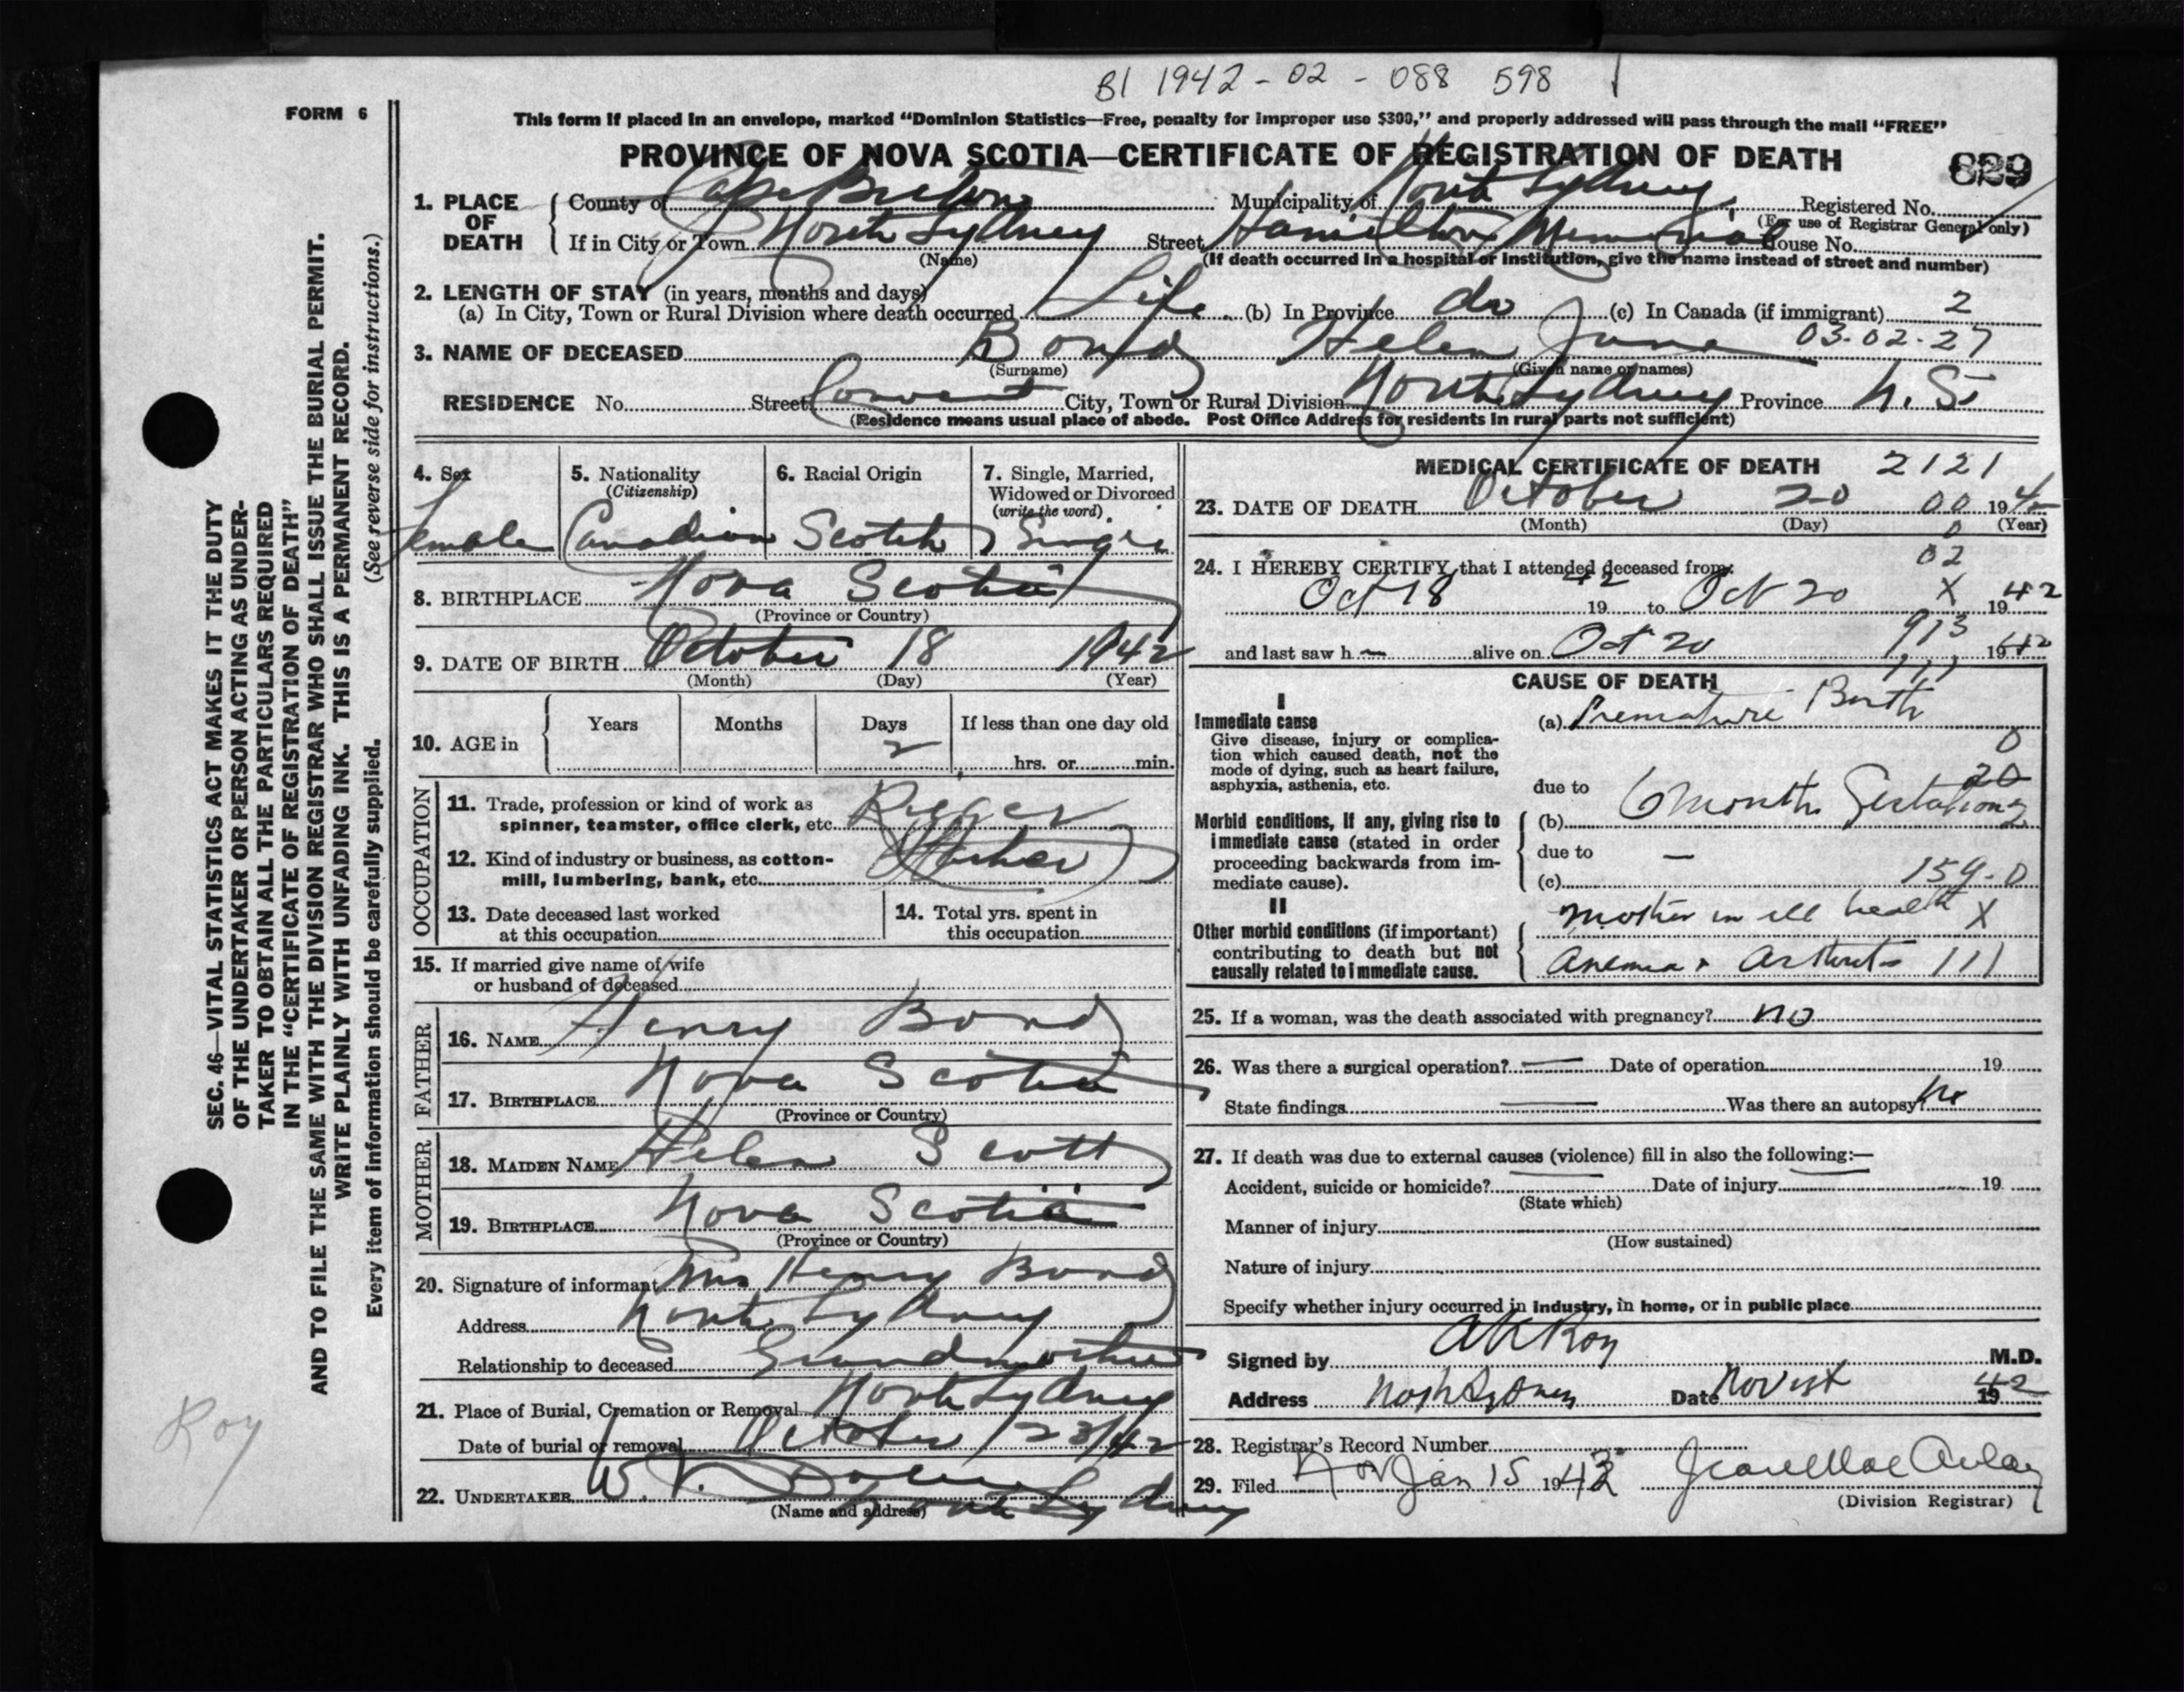 B1 1942-02-088 598
FORM 6
This form if placed in an envelope, marked "Dominion Statistics—Free, penalty for improper use $300," and properly addressed will pass through the mail "FREE"
PROVINCE OF NOVA SCOTIA—CERTIFICATE OF REGISTRATION OF DEATH
829
1. PLACE OF DEATH
County of Cape Breton Municipality of North Sydney Registered No.
(For use of Registrar General only)
If in City or Town North Sydney Street Hamilton Memorial House No.
(Name) (If death occurred in a hospital or institution, give the name instead of street and number)
2. LENGTH OF STAY (in years, months and days)
(a) In City, Town or Rural Division where death occurred Life (b) In Province do (c) In Canada (if immigrant) 2
3. NAME OF DECEASED Bond Helen June 03-02-27
(Surname) (Given name or names)
RESIDENCE No. Street Convent City, Town or Rural Division North Sydney Province N.S.
(Residence means usual place of abode. Post Office Address for residents in rural parts not sufficient)
4. Sex Female
5. Nationality (Citizenship) Canadian
6. Racial Origin Scotch
7. Single, Married, Widowed or Divorced (write the word) Single
8. BIRTHPLACE Nova Scotia
(Province or Country)
9. DATE OF BIRTH October 18 1942
(Month) (Day) (Year)
10. AGE in Years Months Days 2 If less than one day old
hrs. or min.
OCCUPATION
11. Trade, profession or kind of work as spinner, teamster, office clerk, etc.
12. Kind of industry or business, as cotton-mill, lumbering, bank, etc.
13. Date deceased last worked at this occupation
14. Total yrs. spent in this occupation
15. If married give name of wife or husband of deceased
FATHER
16. NAME Henry Bond
17. BIRTHPLACE Nova Scotia
(Province or Country)
MOTHER
18. MAIDEN NAME Helen Scott
19. BIRTHPLACE Nova Scotia
(Province or Country)
20. Signature of informant Mrs Henry Bond
Address North Sydney
Relationship to deceased Grandmother
21. Place of Burial, Cremation or Removal North Sydney
Date of burial or removal October 23/42
22. UNDERTAKER W. North Sydney
(Name and address)
MEDICAL CERTIFICATE OF DEATH 2121
23. DATE OF DEATH October 20 00 1942
(Month) (Day) (Year)
0
02
24. I HEREBY CERTIFY, that I attended deceased from:
Oct 18 1942 to Oct 20 X 1942
913
and last saw h alive on Oct 20 1942
111
CAUSE OF DEATH
I
Immediate cause
Give disease, injury or complication which caused death, not the mode of dying, such as heart failure, asphyxia, asthenia, etc.
(a) Premature Birth
0
20
due to
Morbid conditions, if any, giving rise to immediate cause (stated in order proceeding backwards from immediate cause).
(b) 6 months Gestation
due to —
(c) 159-0
II
Other morbid conditions (if important) contributing to death but not causally related to immediate cause.
Mother in ill health X
Anemia + Arthritis 111
25. If a woman, was the death associated with pregnancy? no
26. Was there a surgical operation? — Date of operation 19
State findings — Was there an autopsy? No
27. If death was due to external causes (violence) fill in also the following:—
Accident, suicide or homicide? Date of injury 19
(State which)
Manner of injury
(How sustained)
Nature of injury
Specify whether injury occurred in industry, in home, or in public place
Signed by A K Roy M.D.
Address North Sydney Date Nov 1st 1942
28. Registrar's Record Number
29. Filed Nov Jan 15 1943 Jean MacAulay
(Division Registrar)
SEC. 46—VITAL STATISTICS ACT MAKES IT THE DUTY
OF THE UNDERTAKER OR PERSON ACTING AS UNDER-
TAKER TO OBTAIN ALL THE PARTICULARS REQUIRED
IN THE "CERTIFICATE OF REGISTRATION OF DEATH"
AND TO FILE THE SAME WITH THE DIVISION REGISTRAR WHO SHALL ISSUE THE BURIAL PERMIT.
WRITE PLAINLY WITH UNFADING INK. THIS IS A PERMANENT RECORD.
Every item of information should be carefully supplied. (See reverse side for instructions.)
Roy